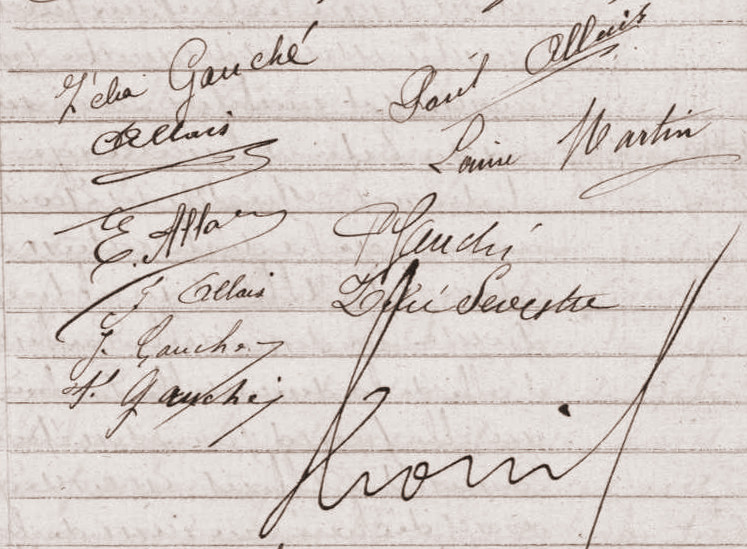 Zélia Gauché Paul Allais
Allais Louise Martin
E. Allais P. Gauché
Allais Zélie Sevestre
J. Gauché
F. Gauché